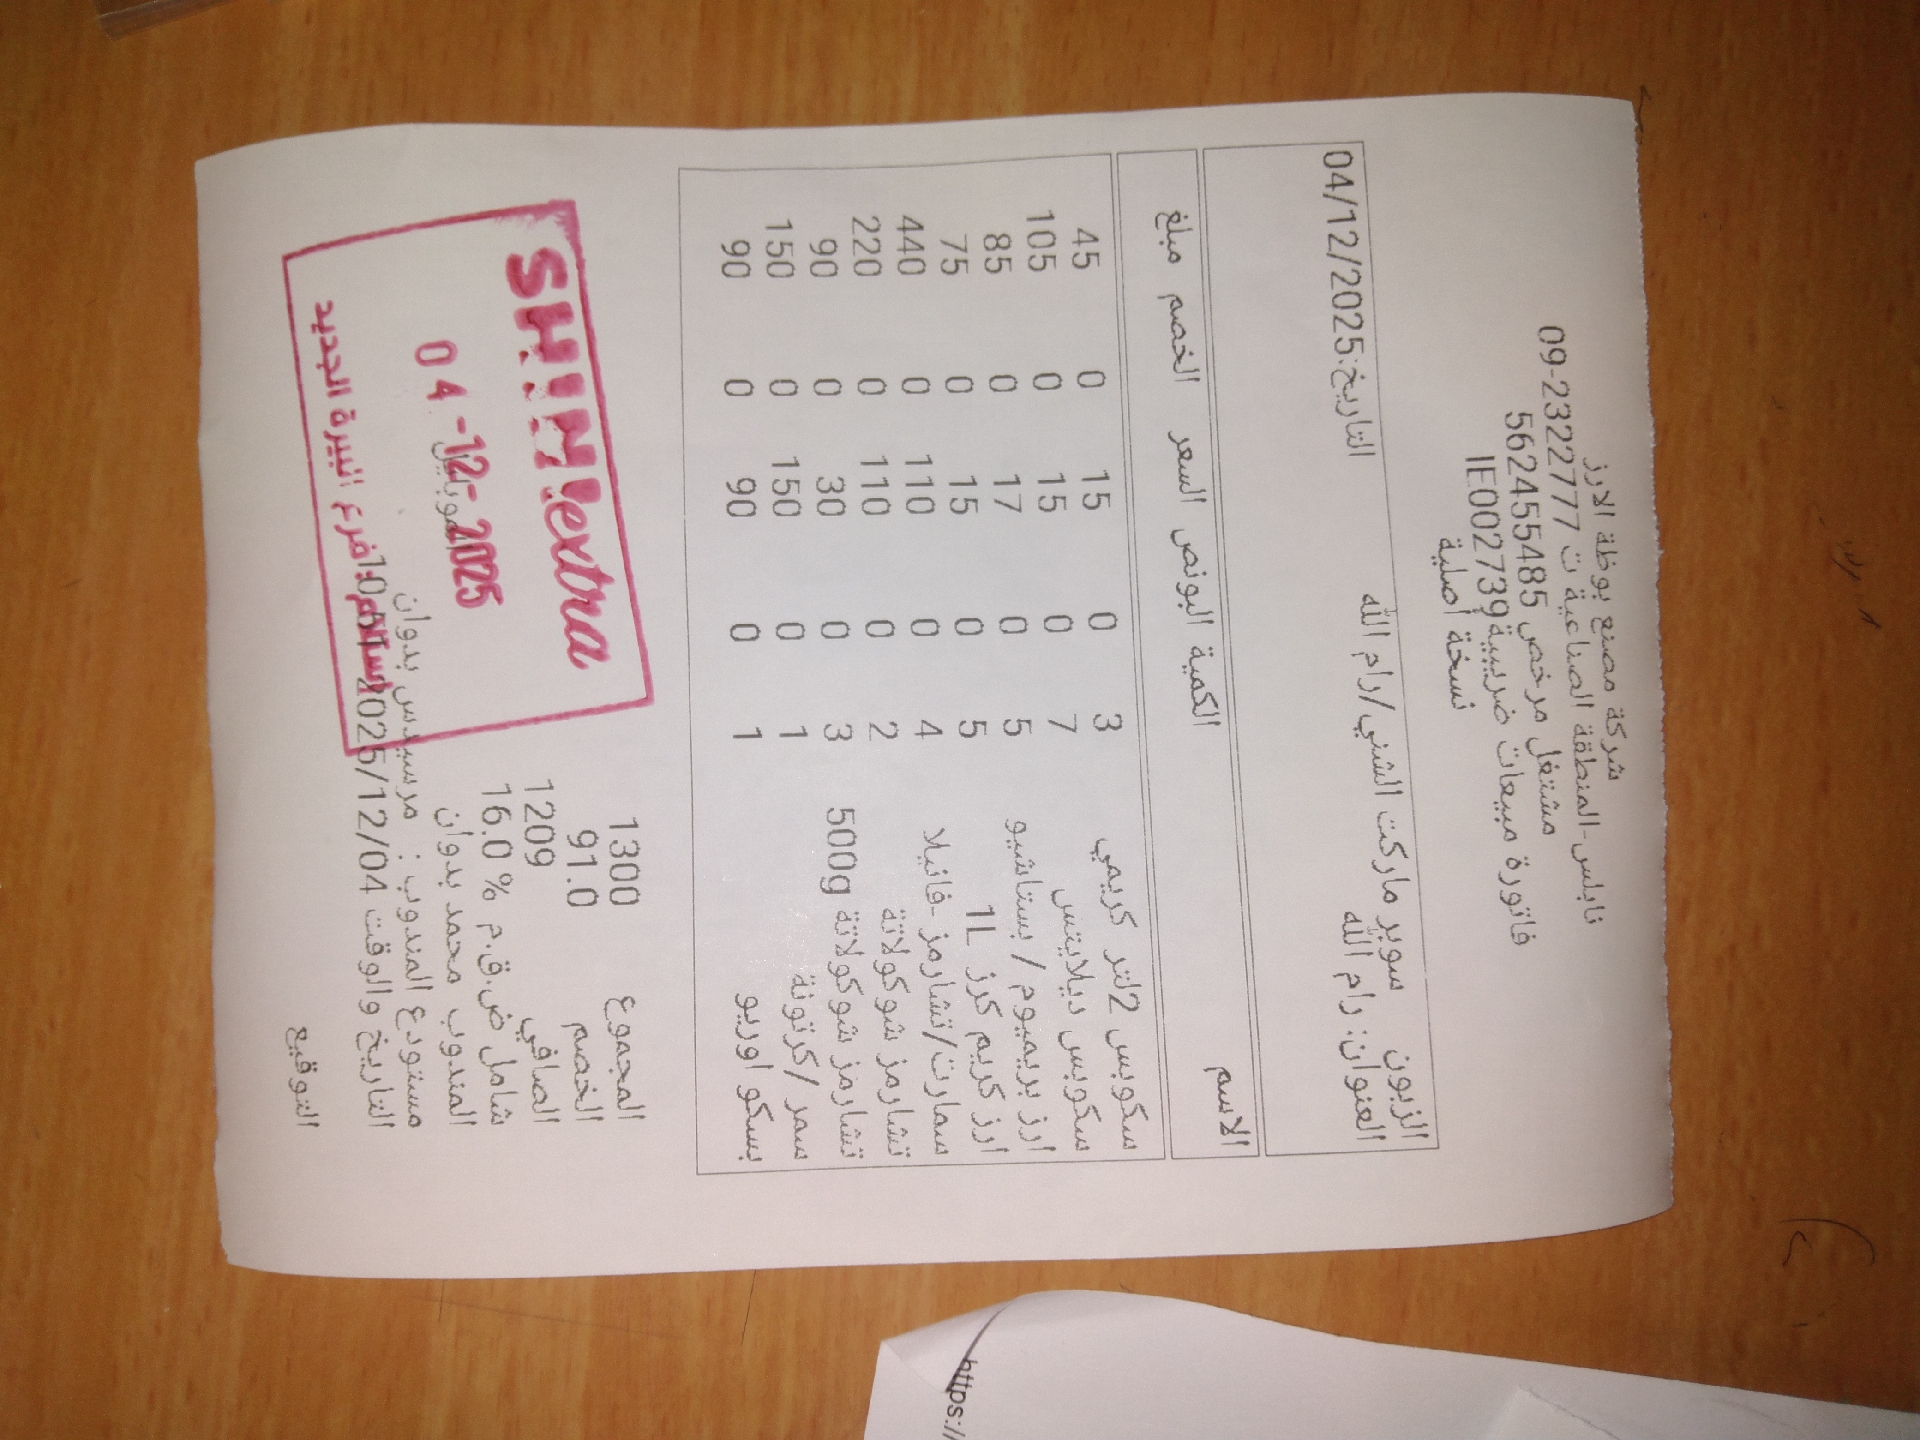 شركة مصنع بوظة الارز
نابلس-المنطقة الصناعية ت 2322777-09
مشتغل مرخص 562455485
فاتورة مبيعات ضريبية IE002739
نسخة أصلية
الزبون سوبر ماركت الشني/رام الله
العنوان: رام الله التاريخ:04/12/2025
الاسم الكمية البونص السعر الخصم مبلغ
سكوبس 2لتر كريمي 3 0 15 0 45
سكوبس ديلايتس 7 0 15 0 105
ارز بريميوم / بستاشيو 5 0 17 0 85
ارز كريم كرز 1L 5 0 15 0 75
سمارت/تشارمز -فانيلا 4 0 110 0 440
تشارمز شوكولاتة 2 0 110 0 220
تشارمز شوكولاتة 500g 3 0 30 0 90
سمر /كرتونة 1 0 150 0 150
بسكو اوريو 1 0 90 0 90
المجموع 1300
الخصم 91.0
الصافي 1209
شامل ض.ق.م % 16.0
المندوب محمد بدوان
مستودع المندوب : مرسيدس بدوان
التاريخ والوقت 2025/12/04
التوقيع
SHINI extra
04-12-2025
فرع البيرة الجديد
https://